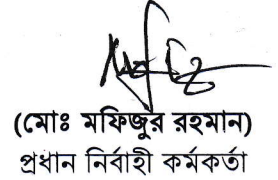 (মোঃ মফিজুর রহমান)
প্রধান নির্বাহী কর্মকর্তা